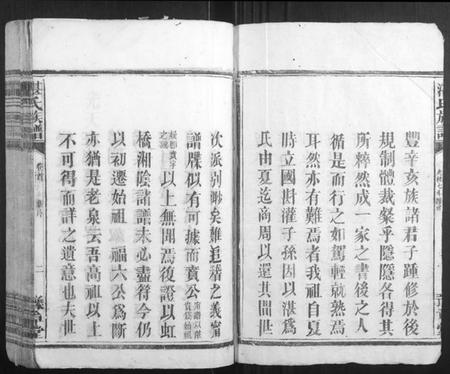 豐辛亥族諸君子踵修於後
規制體裁粲乎隱隱各得其
所粹然成一家之書後之人
循是而行之如駕輕就熟焉
耳然亦有難焉者我祖自夏
時立國斟灌子孫因以湛爲
氏由夏迄商周以還其間世
次派別眇矣難追藉之義甯
譜牒似有可據而實公
以上無聞焉復證以虹
橋湘陰諸譜未必盡符今仍
以初遷始祖 福六公爲斷
亦猶是老泉云吾高祖以上
不可得而詳之遺意也夫世
湛氏族譜
卷首
二